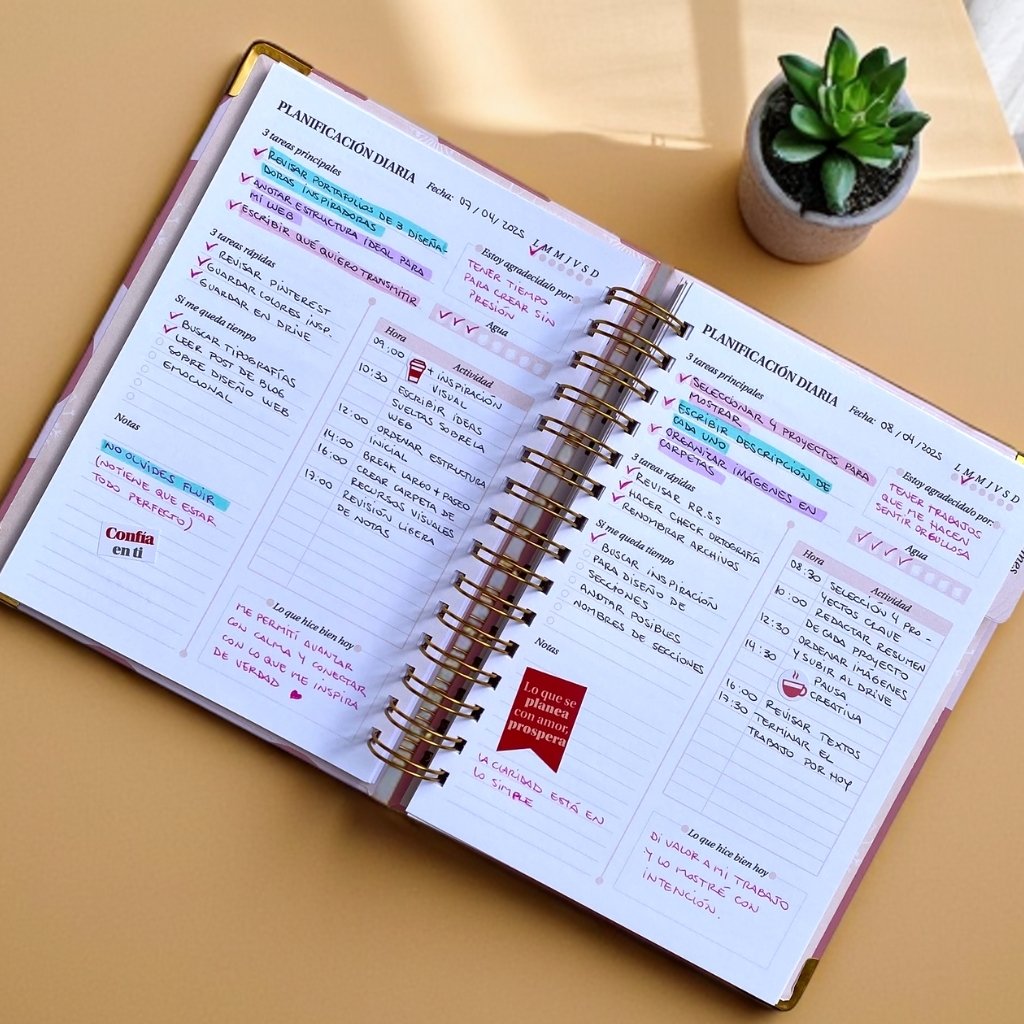 PLANIFICACIÓN DIARIA
Fecha: 07/04/2025
L M M J V S D
3 tareas principales
REVISAR PORTAFOLIOS DE 3 DISEÑA-
DORAS INSPIRADORAS
ANOTAR ESTRUCTURA IDEAL PARA
MI WEB
ESCRIBIR QUÉ QUIERO TRANSMITIR
Estoy agradecida/o por:
TENER TIEMPO
PARA CREAR SIN
PRESIÓN
3 tareas rápidas
REVISAR PINTEREST
GUARDAR COLORES INSP.
GUARDAR EN DRIVE
Agua
Si me queda tiempo
BUSCAR TIPOGRAFÍAS
LEER POST DE BLOG
SOBRE DISEÑO WEB
EMOCIONAL
Hora Actividad
09:00 + INSPIRACIÓN
VISUAL
10:30 ESCRIBIR IDEAS
SUELTAS SOBRE LA
WEB
12:00 ORDENAR ESTRUCTURA
INICIAL
14:00 BREAK LARGO + PASEO
16:00 CREAR CARPETA DE
RECURSOS VISUALES
17:00 REVISIÓN LIGERA
DE NOTAS
Notas
NO OLVIDES FLUIR
(NO TIENE QUE ESTAR
TODO PERFECTO)
Confía
en ti
Lo que hice bien hoy
ME PERMITÍ AVANZAR
CON CALMA Y CONECTAR
CON LO QUE ME INSPIRA
DE VERDAD
PLANIFICACIÓN DIARIA
Fecha: 08/04/2025
L M M J V S D
3 tareas principales
SELECCIONAR 4 PROYECTOS PARA
MOSTRAR
ESCRIBIR DESCRIPCIÓN DE
CADA UNO
ORGANIZAR IMÁGENES EN
CARPETAS
Estoy agradecida/o por:
TENER TRABAJOS
QUE ME HACEN
SENTIR ORGULLOSA
3 tareas rápidas
REVISAR RR.SS
HACER CHECK ORTOGRAFÍA
RENOMBRAR ARCHIVOS
Agua
Si me queda tiempo
BUSCAR INSPIRACIÓN
PARA DISEÑO DE
SECCIONES
ANOTAR POSIBLES
NOMBRES DE SECCIONES
Hora Actividad
08:30 SELECCIÓN 4 PRO-
YECTOS CLAVE
10:00 REDACTAR RESUMEN
DE CADA PROYECTO
12:30 ORDENAR IMÁGENES
Y SUBIR AL DRIVE
14:30 PAUSA
CREATIVA
16:00 REVISAR TEXTOS
17:30 TERMINAR EL
TRABAJO POR HOY
Notas
Lo que se
planea
con amor,
prospera
LA CLARIDAD ESTÁ EN
LO SIMPLE
Lo que hice bien hoy
DI VALOR A MI TRABAJO
Y LO MOSTRÉ CON
INTENCIÓN.